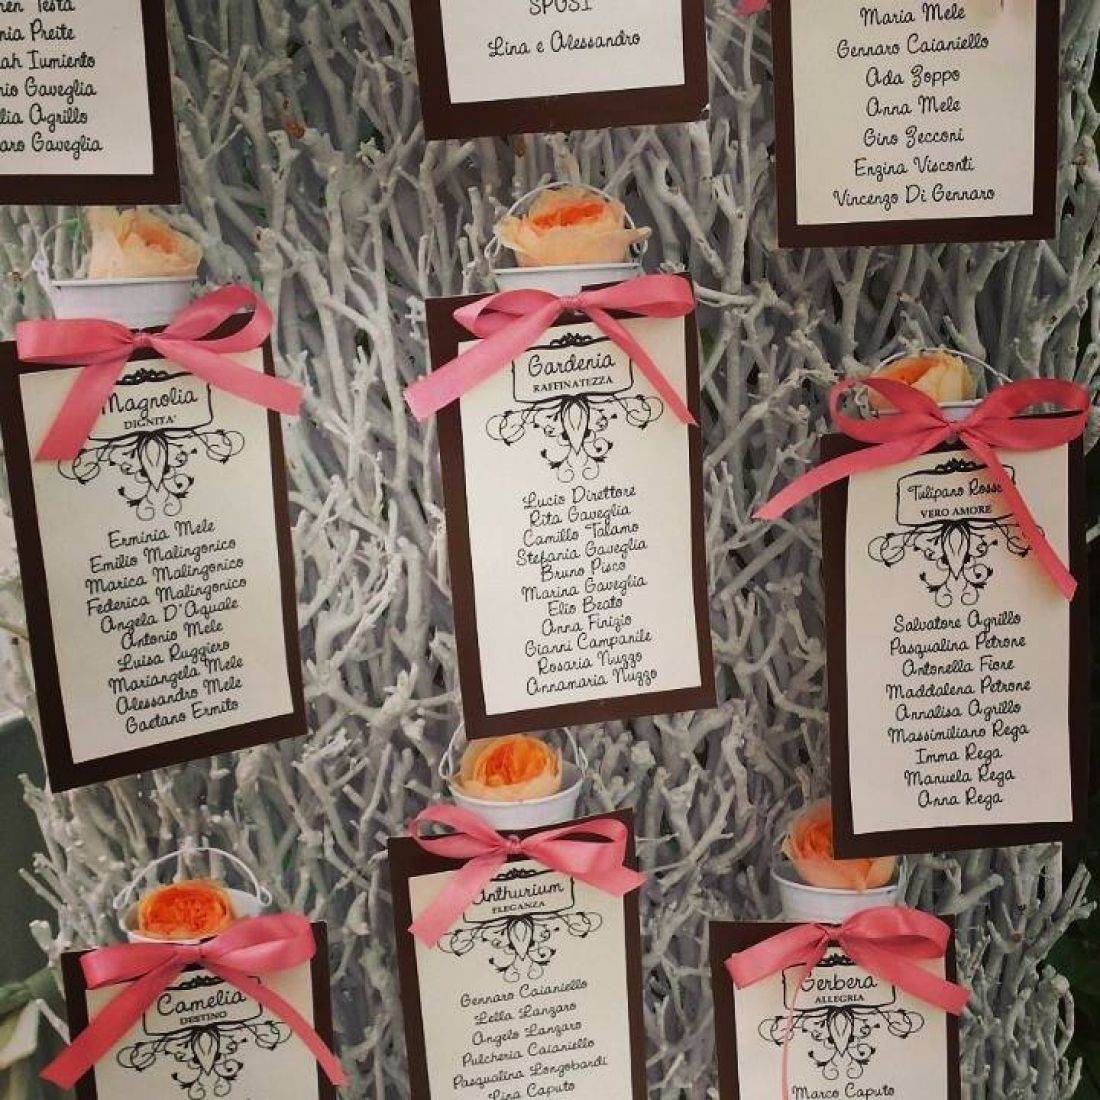 Testa
Preite
Iumiento
Gaveglia
Agrillo
Gaveglia
SPOSI
Lina e Alessandro
Maria Mele
Gennaro Caianiello
Ada Zoppo
Anna Mele
Gino Zecconi
Enzina Visconti
Vincenzo Di Gennaro
Magnolia
DIGNITA'
Erminia Mele
Emilio Malingonico
Marica Malingonico
Federica Malingonico
Angela D'Aquale
Antonio Mele
Luisa Ruggiero
Mariangela Mele
Alessandro Mele
Gaetano Ermito
Gardenia
RAFFINATEZZA
Lucio Direttore
Rita Gaveglia
Camillo Talamo
Stefania Gaveglia
Bruno Pisco
Marina Gaveglia
Elio Beato
Anna Finizio
Gianni Campanile
Rosaria Nuzzo
Annamaria Nuzzo
Tulipano Rosso
VERO AMORE
Salvatore Agrillo
Pasqualina Petrone
Antonella Fiore
Maddalena Petrone
Annalisa Agrillo
Massimiliano Rega
Imma Rega
Manuela Rega
Anna Rega
Camelia
DESTINO
Anthurium
ELEGANZA
Gennaro Caianiello
Lella Lanzaro
Angelo Lanzaro
Pulcheria Caianiello
Pasqualina Longobardi
Lina Caputo
Gerbera
ALLEGRIA
Marco Caputo